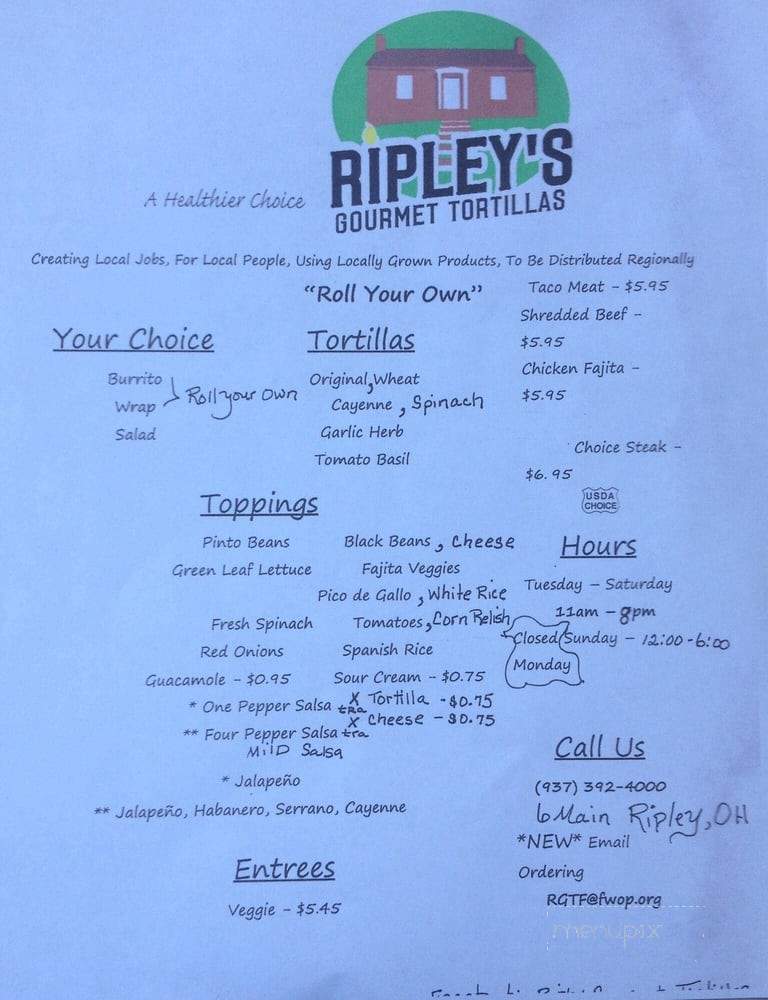 RIPLEY'S
GOURMET TORTILLAS
A Healthier Choice
Creating Local Jobs, For Local People, Using Locally Grown Products, To Be Distributed Regionally
"Roll Your Own"
Your Choice
Burrito
Wrap
Roll your Own
Salad
Tortillas
Original, Wheat
Cayenne, Spinach
Garlic Herb
Tomato Basil
Taco Meat - $5.95
Shredded Beef -
$5.95
Chicken Fajita -
$5.95
Choice Steak -
$6.95
USDA
CHOICE
Toppings
Pinto Beans Black Beans, Cheese
Green Leaf Lettuce Fajita Veggies
Pico de Gallo, White Rice
Fresh Spinach Tomatoes, Corn Relish
Red Onions Spanish Rice
Guacamole - $0.95 Sour Cream - $0.75
* One Pepper Salsa Xtra Tortilla - $0.75
** Four Pepper Salsa Xtra Cheese - $0.75
Mild Salsa
* Jalapeño
** Jalapeño, Habanero, Serrano, Cayenne
Entrees
Veggie - $5.45
Hours
Tuesday – Saturday
11am - 8pm
Closed Sunday - 12:00-6:00
Monday
Call Us
(937) 392-4000
6 Main Ripley, OH
*NEW* Email
Ordering
RGTF@fwop.org
menupix